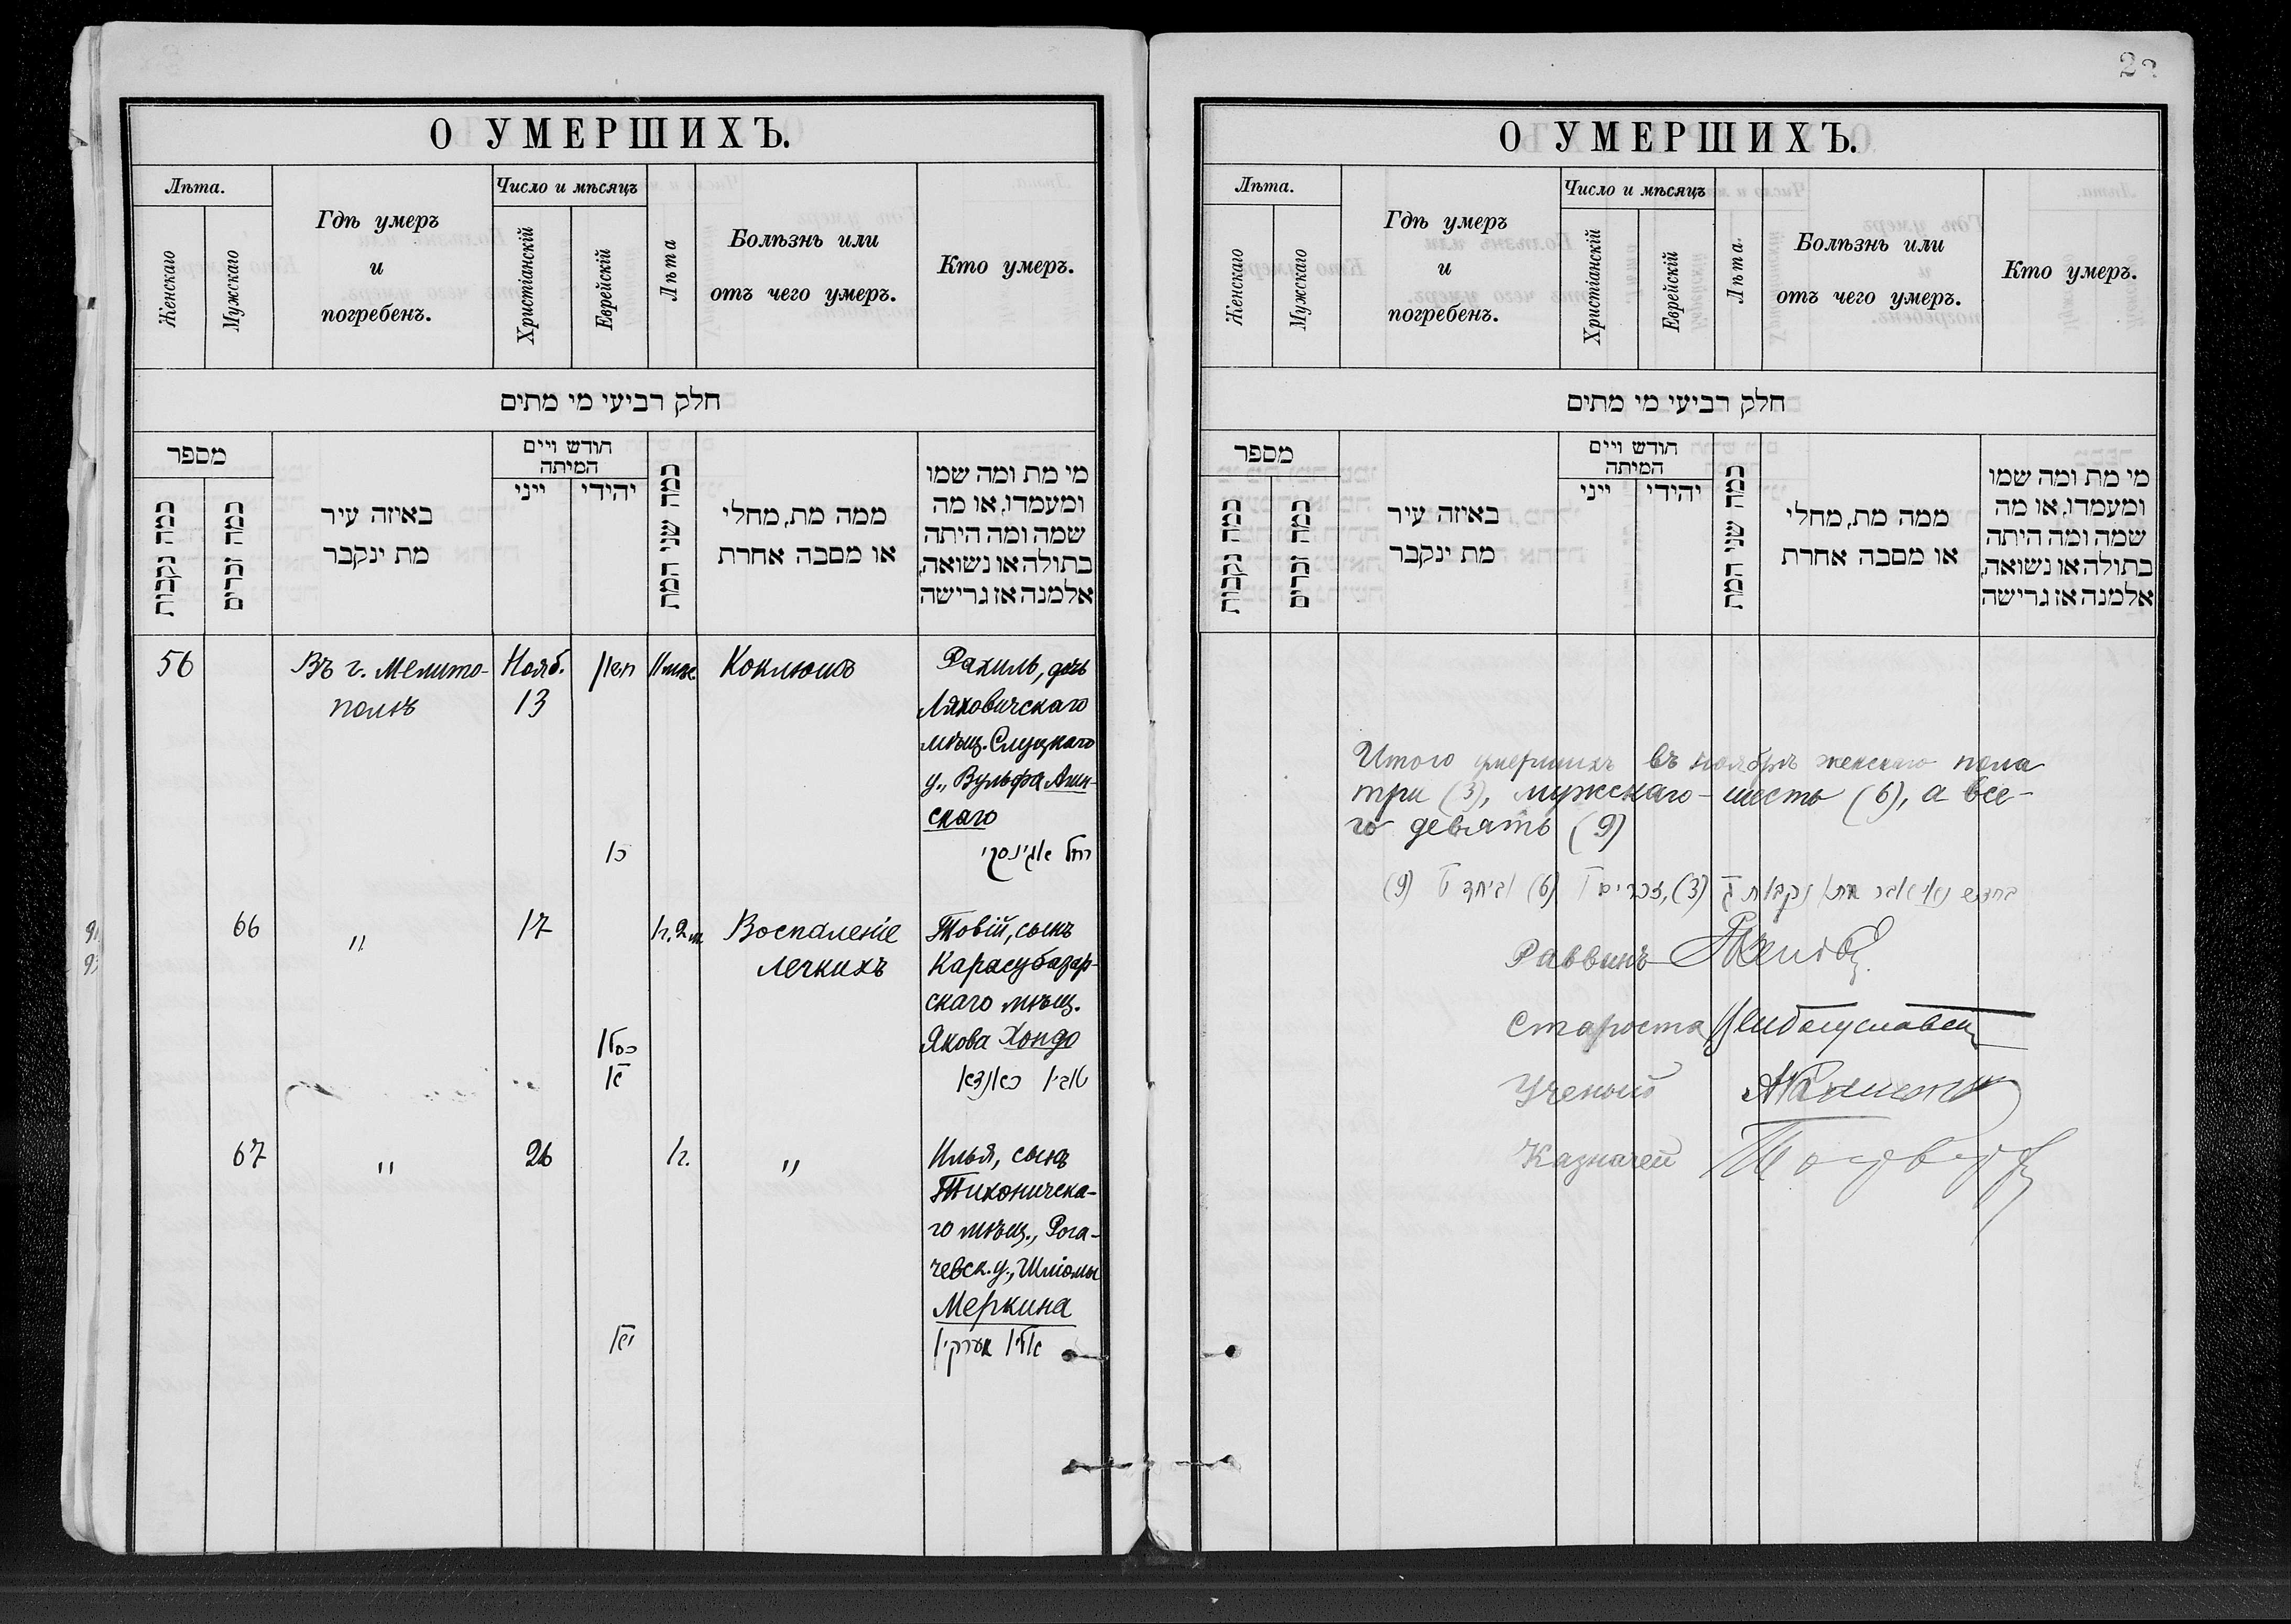 О УМЕРШИХЪ.
Лѣта.
Женскаго
Мужскаго
Гдѣ умеръ
и
погребенъ.
Число и мѣсяцъ
Христіанскій
Еврейскій
Лѣта
Болѣзнь или
отъ чего умеръ.
Кто умеръ.
חלק רביעי מי מתים
מספר
כמה נקבות
כמה זכרים
באיזה עיר
מת ינקבר
חודש ויים
המיתה
ייני
יהודי
כמה שני המת
ממה מת, מחלי
או מסבה אחרת
מי מת ומה שמו
ומעמדו, או מה
שמה ומה היתה
בתולה או נשואה,
אלמנה אז גרישה
56
Въ г. Мелито-
полѣ
Нояб.
13
חשון
כו
11 мѣс.
Коклюшъ
Рахиль, дочь
Ляховичскаго
мѣщ. Слуцкаго
у., Вульфа Агин-
скаго
רחל אגינסקי
66
"
17
1 г. 2 м.
Воспаленіе
легкихъ
Товій, сынъ
Карасубазар-
скаго мѣщ.
Якова Хондо
כסלו
67
"
26
1 г.
"
Илья, сынъ
Тихоничска-
го мѣщ., Рога-
чевск. у., Шліомы
Меркина
מערקין
О УМЕРШИХЪ.
Лѣта.
Женскаго
Мужскаго
Гдѣ умеръ
и
погребенъ.
Число и мѣсяцъ
Христіанскій
Еврейскій
Лѣта.
Болѣзнь или
отъ чего умеръ.
Кто умеръ.
חלק רביעי מי מתים
מספר
כמה נקבות
כמה זכרים
באיזה עיר
מת ינקבר
חודש ויים
המיתה
ייני
יהודי
כמה שני המת
ממה מת, מחלי
או מסבה אחרת
מי מת ומה שמו
ומעמדו, או מה
שמה ומה היתה
בתולה או נשואה,
אלמנה אז גרישה
Итого умершихъ въ ноябрѣ женскаго пола
три (3), мужскаго - шесть (6), а все-
го девять (9)
בחדש נאיאבר מתו נקבות ג (3), זכרים ו (6) וביחד ט (9)
Раввинъ
Староста
Ученый
Казначей